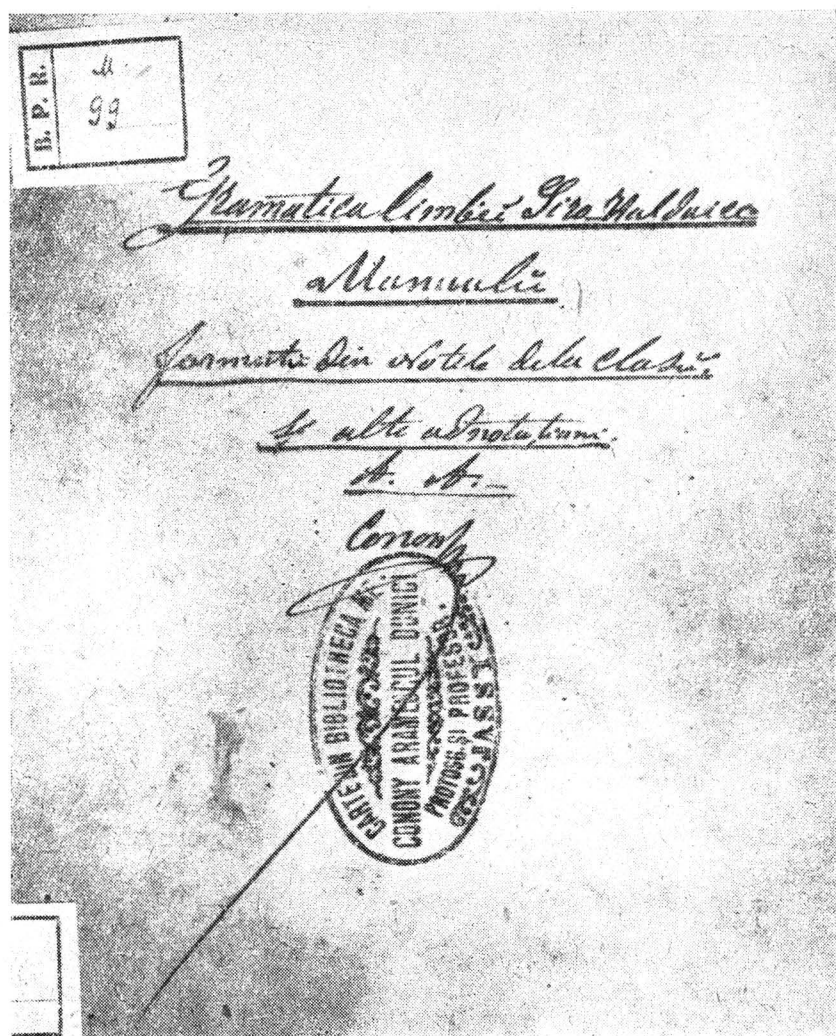 B. P. R.
M
99
Gramatica limbii Siro-Haldaice
Manualŭ
formatŭ din Notele dela clasă,
și alte adnotațiuni.
A. A.
Conony
CARTE DIN BIBLIOTHECA
CONONY ARAMESCUL DUNICI
PROTOGG. ȘI PROFESOR.
JASSI